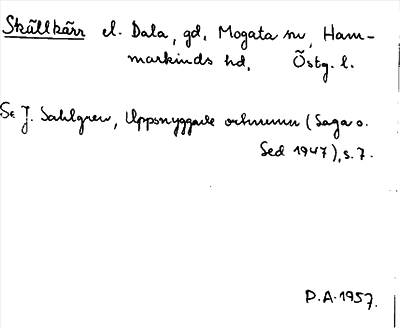 Skällkärr el. Dala, gd, Mogata sn, Ham-
markinds hd. Östg. l.
Se J. Sahlgren, Uppsnyggade ortnamn (Saga o.
Sed 1947), s. 7.
P.A. 1957.